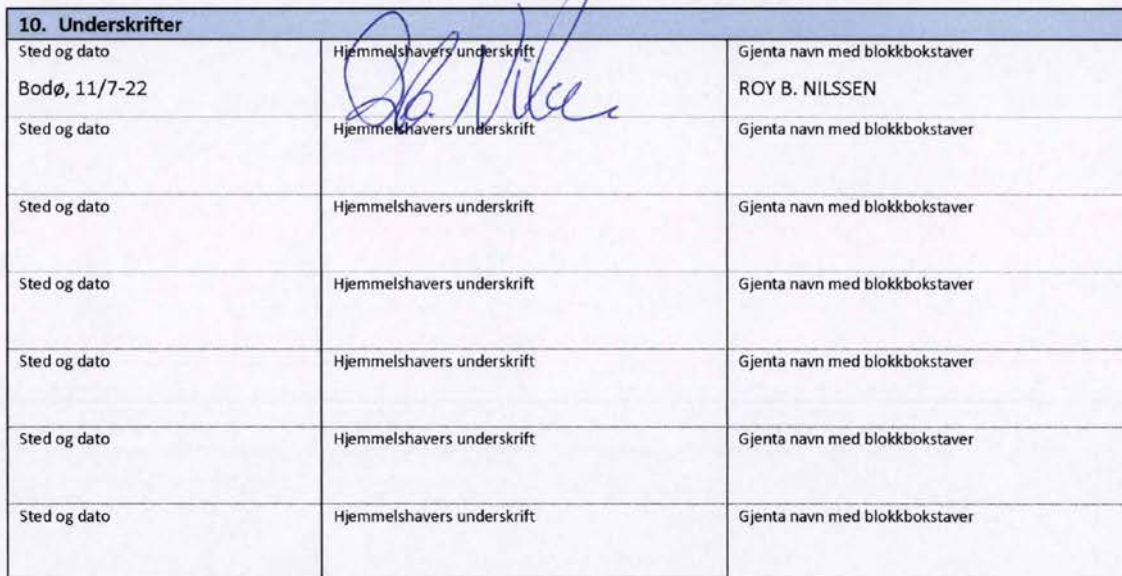 10. Underskrifter
Sted og dato Hjemmelshavers underskrift Gjenta navn med blokkbokstaver
Bodø, 11/7-22 ROY B. NILSSEN
Sted og dato Hjemmelshavers underskrift Gjenta navn med blokkbokstaver
Sted og dato Hjemmelshavers underskrift Gjenta navn med blokkbokstaver
Sted og dato Hjemmelshavers underskrift Gjenta navn med blokkbokstaver
Sted og dato Hjemmelshavers underskrift Gjenta navn med blokkbokstaver
Sted og dato Hjemmelshavers underskrift Gjenta navn med blokkbokstaver
Sted og dato Hjemmelshavers underskrift Gjenta navn med blokkbokstaver